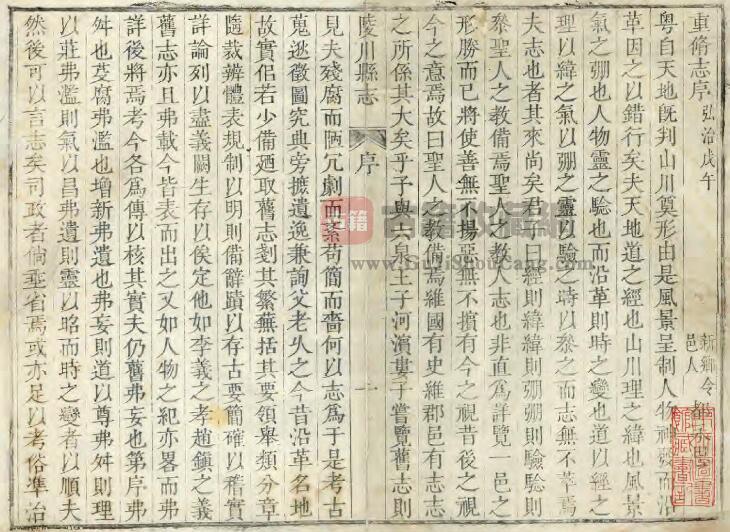 重脩志序
弘治戊午
新鄉令
邑人
粤自天地旣判山川奠形由是風景呈制人物
革因之以錯行矣夫天地道之經也山川理之緯也風景
氣之弸也人物靈之騐也而沿革則時之變也道以經之
理以緯之氣以弸之靈以驗之時以叅之而志無不萃焉
夫志也者其來尚矣君子曰經則緯緯則弸弸則驗驗則
叅聖人之教備焉聖人之教人志也非直為詳覽一邑之
形勝而已將使善無不揚惡無不擯有今之視昔後之視
今之意焉故曰聖人之教備焉維國有史維郡邑有志志
之所係其大矣乎予與六泉王子河濱婁子嘗覽舊志則
陵川縣志
序
一
見夫殘腐而陋冗劇而紊苟簡而嗇何以志為于是考古
蒐逖徵圖究典旁摭遺逸兼詢父老乆之今昔沿革名地
故實侣若少備廼取舊志剗其繁蕪括其要領舉類分章
隨裁辨體表規制以明則備辭蹟以存古要簡確以稽實
詳論列以盡義闕生存以俟定他如李義之孝趙鎮之義
舊志亦且弗載今皆表而出之又如人物之紀亦畧而弗
詳後將焉考今各為傳以核其實夫仍舊弗妄也第序弗
舛也芟腐弗濫也增新弗遺也弗妄則道以尊弗舛則理
以莊弗濫則氣以昌弗遺則靈以昭而時之變者以順夫
然後可以言志矣司政者倘垂省焉或亦足以考俗凖治
古籍收藏網
www.GuJiShouCang.com